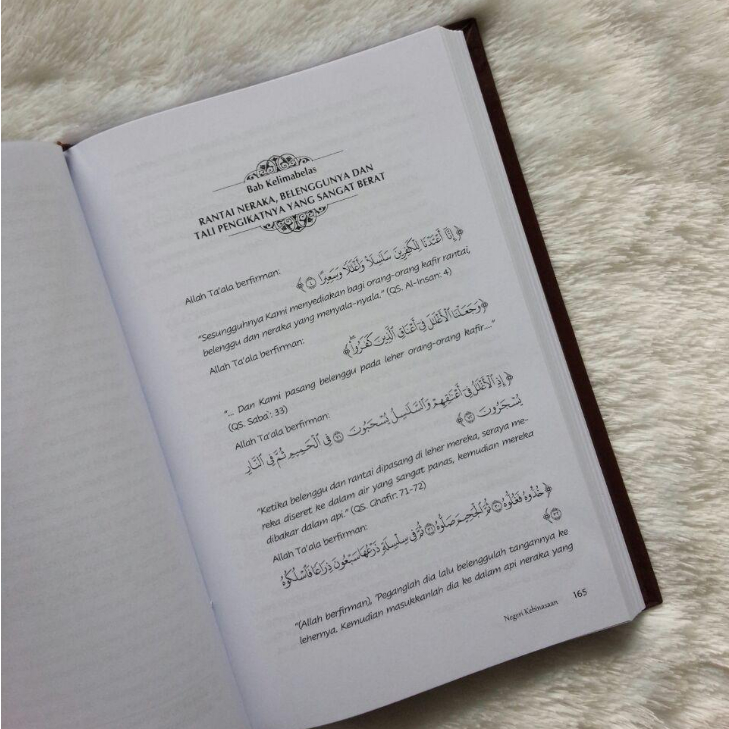 Bab Kelimabelas
RANTAI NERAKA, BELENGGUNYA DAN
TALI PENGIKATNYA YANG SANGAT BERAT
Allah Ta'ala berfirman:
﴿ إِنَّآ أَعْتَدْنَا لِلْكَٰفِرِينَ سَلَٰسِلَا۟ وَأَغْلَٰلًا وَسَعِيرًا ۝٤ ﴾
"Sesungguhnya Kami menyediakan bagi orang-orang kafir rantai,
belenggu dan neraka yang menyala-nyala." (QS. Al-Insan: 4)
Allah Ta'ala berfirman:
﴿ وَجَعَلْنَا ٱلْأَغْلَٰلَ فِىٓ أَعْنَاقِ ٱلَّذِينَ كَفَرُوا۟ ﴾
"... Dan Kami pasang belenggu pada leher orang-orang kafir..."
(QS. Saba`: 33)
Allah Ta'ala berfirman:
﴿ إِذِ ٱلْأَغْلَٰلُ فِىٓ أَعْنَٰقِهِمْ وَٱلسَّلَٰسِلُ يُسْحَبُونَ ۝٧١ فِى ٱلْحَمِيمِ ثُمَّ فِى ٱلنَّارِ
يُسْجَرُونَ ۝٧٢ ﴾
"Ketika belenggu dan rantai dipasang di leher mereka, seraya me-
reka diseret ke dalam air yang sangat panas, kemudian mereka
dibakar dalam api." (QS. Ghafir: 71-72)
Allah Ta'ala berfirman:
﴿ خُذُوهُ فَغُلُّوهُ ۝٣٠ ثُمَّ ٱلْجَحِيمَ صَلُّوهُ ۝٣١ ثُمَّ فِى سِلْسِلَةٍ ذَرْعُهَا سَبْعُونَ ذِرَاعًا فَٱسْلُكُوهُ
۝٣٢ ﴾
"(Allah berfirman), 'Peganglah dia lalu belenggulah tangannya ke
lehernya. Kemudian masukkanlah dia ke dalam api neraka yang
Negeri Kebinasaan 165